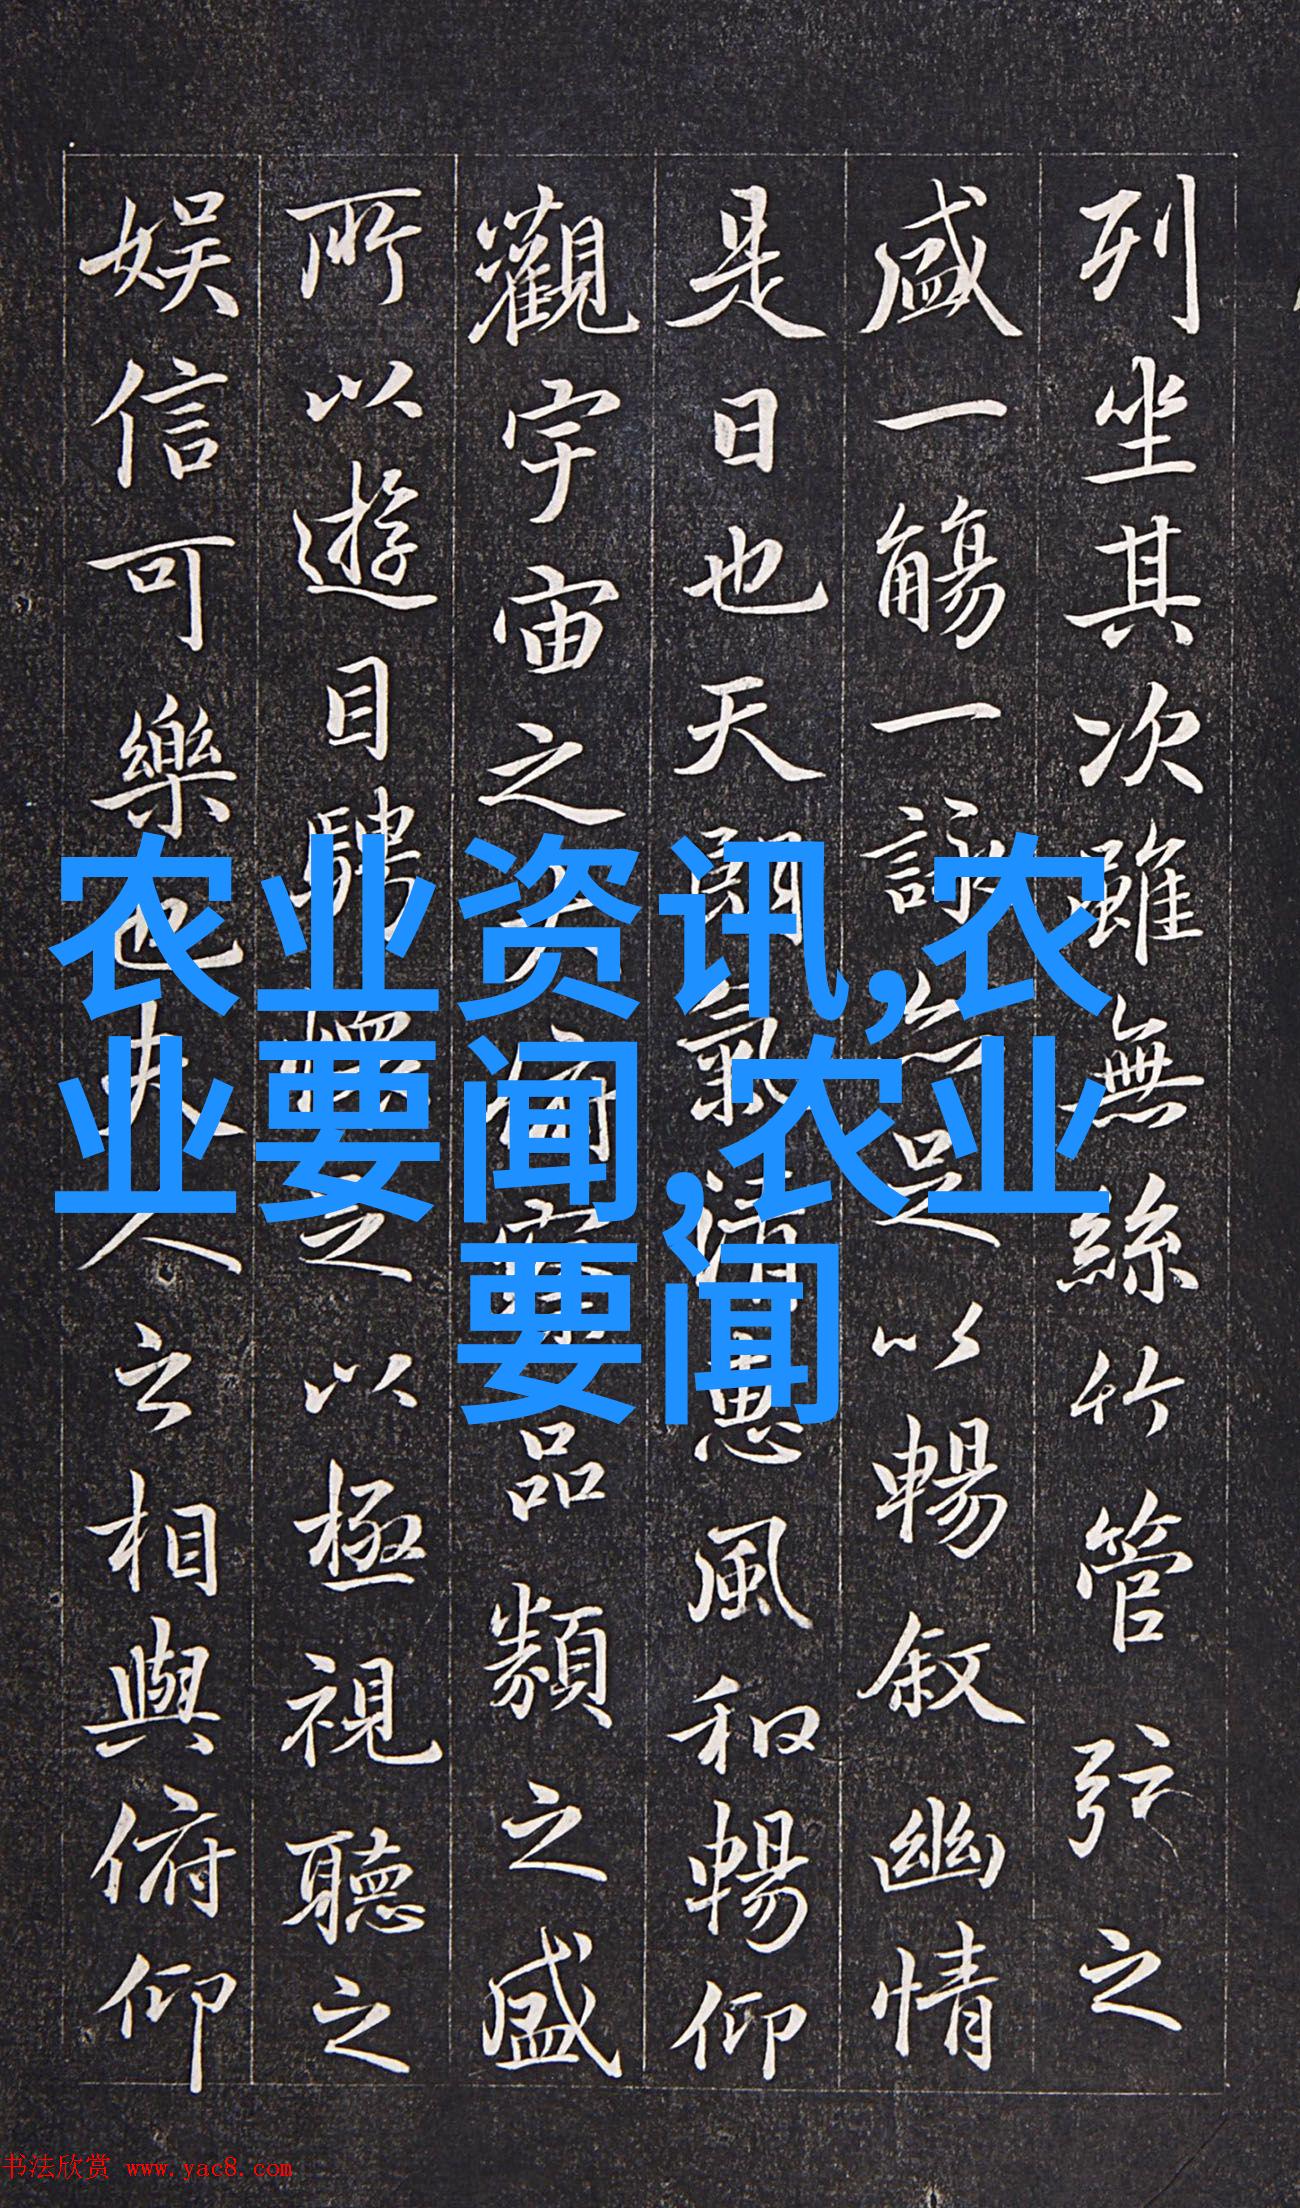 列坐其次雖無絲竹管弦之
盛一觴一詠亦足以暢敘幽情
是日也天朗氣清惠風和暢仰
觀宇宙之大俯察品類之盛
所以遊目騁懷足以極視聽之
娛信可樂也夫人之相與俯仰
农业资讯,农
业要闻,农业
要闻
书法欣赏 www.yac8.com